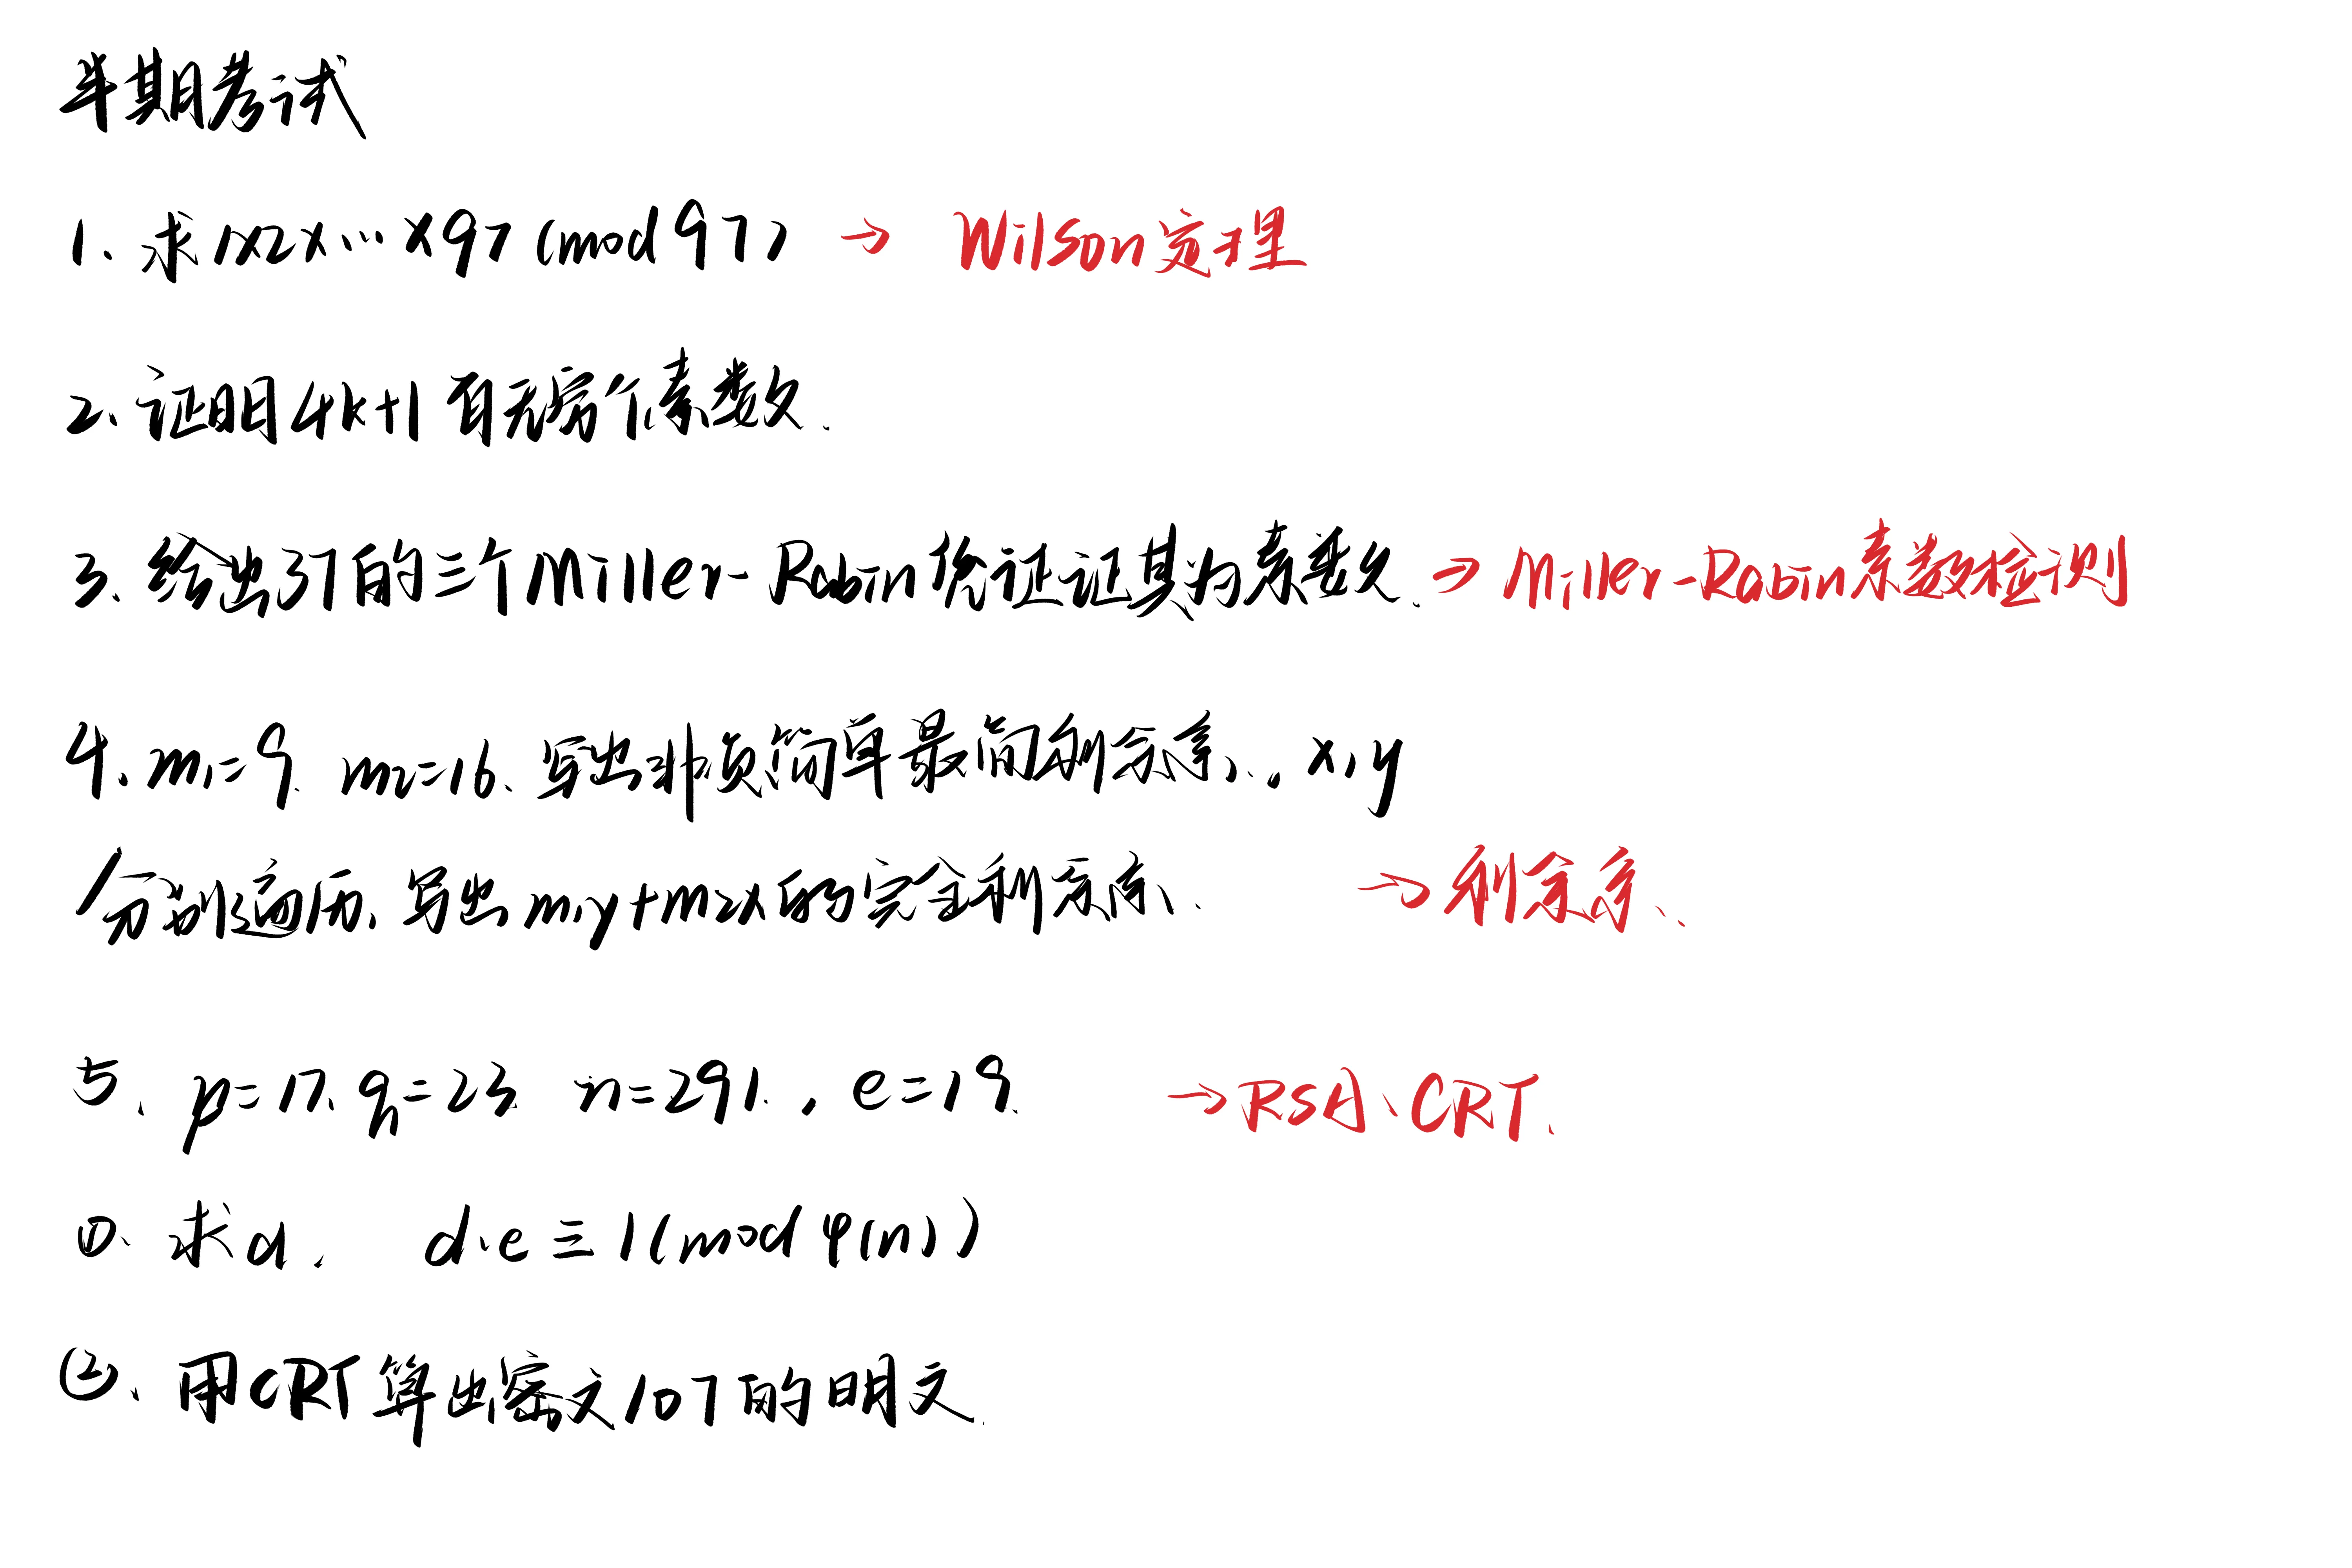 半期考试
1. 求1×2×…×97(mod 97) → Wilson定理
2. 证明4k+1有无穷个素数.
3. 给出37的三个Miller-Robin 凭证证其为素数. → Miller-Robin素数检测
4. m₁=9. m₂=16. 写出非负简单最简剩余系., x,y
分别遍历, 写出m₁y+m₂x的完全剩余系. → 剩余系.
5. p=17. q=23 n=291. , e=19. → RSA、CRT.
①. 求d. d·e≡1(mod φ(n))
②. 用CRT算出密文107的明文.